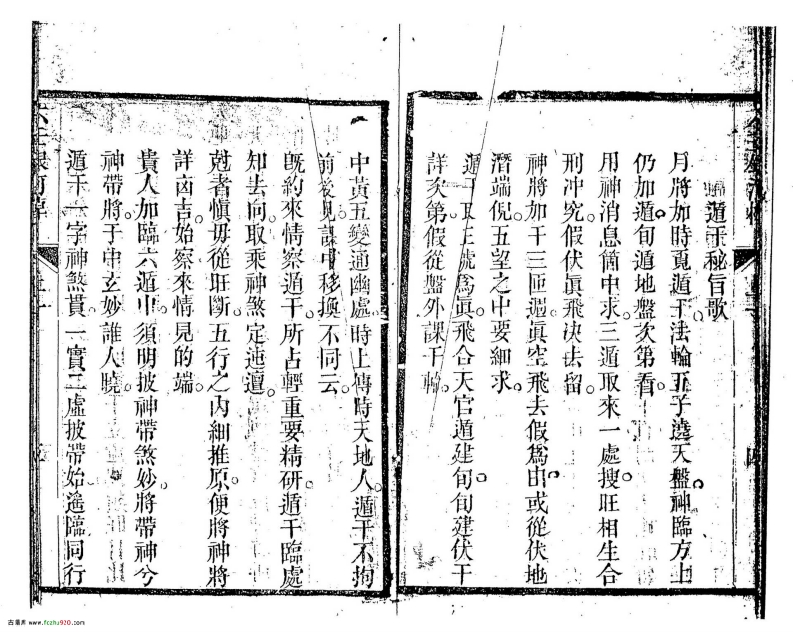 遁干秘旨歌
月將加時覓遁干法輪五子遶天盤神臨方上
仍加遁旬遁地盤次第看
用神消息箇中求三遁取來一處搜旺相生合
刑冲究假伏眞飛决去留
神將加干三匝遇眞空飛去假爲由或從伏地
潛端倪五望之中要細求
遁干取正號爲眞飛合天官遁建旬旬建伏干
詳次第假從盤外課干輪
中黃五變通幽處時上傳時天地人遁干不拘
前後見課中移換不同云
旣約來情察遁干所占輕重要精研遁干臨處
知去向取乘神煞定迍邅
尅者愼毋從旺斷五行之內細推原便將神將
詳凶吉始察來情見的端
貴人加臨六遁中須明披神帶煞妙將帶神兮
神帶將于中玄妙誰人曉
遁干一字神煞貫一實二虛披帶始遙臨同行
古易庫 www.fczhu920.com